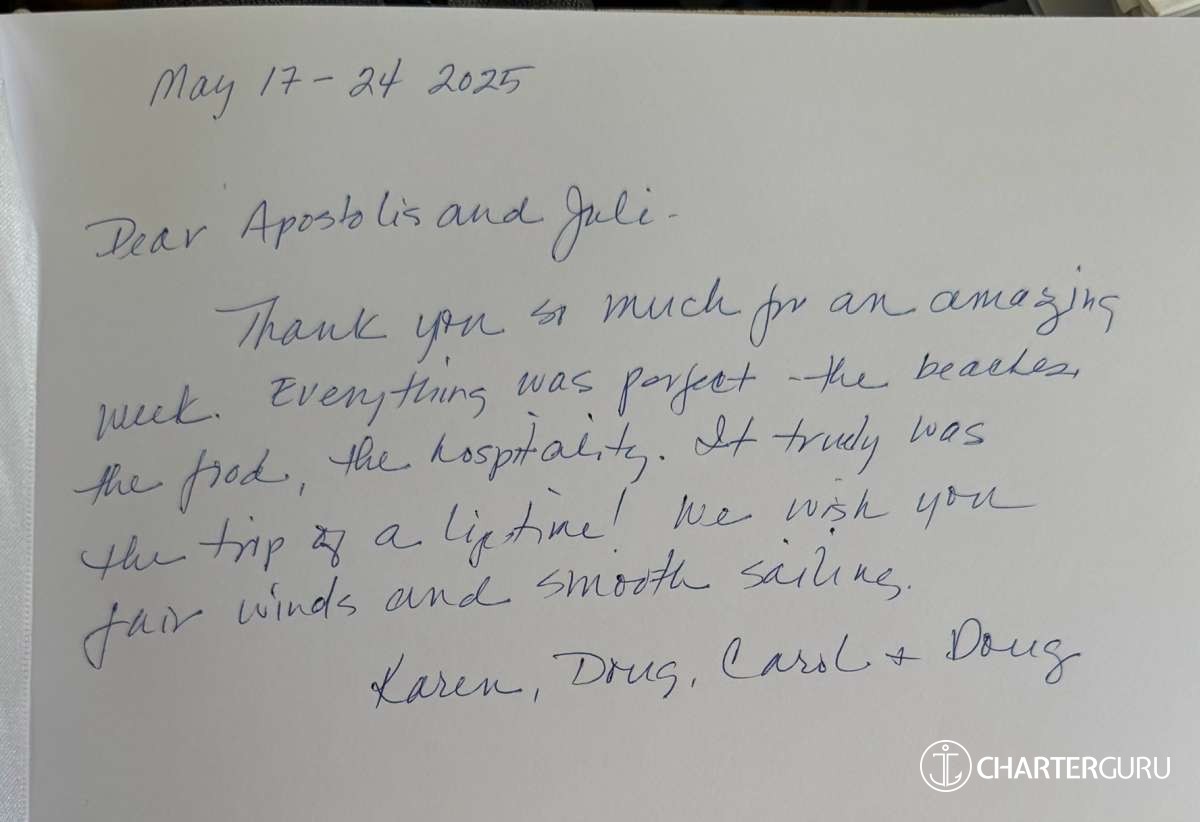 May 17 - 24 2025
Dear Apostolis and Juli -
Thank you so much for an amazing
week. Everything was perfect - the beaches,
the food, the hospitality. It truly was
the trip of a lifetime! We wish you
fair winds and smooth sailing.
Karen, Doug, Carol + Doug
CHARTERGURU